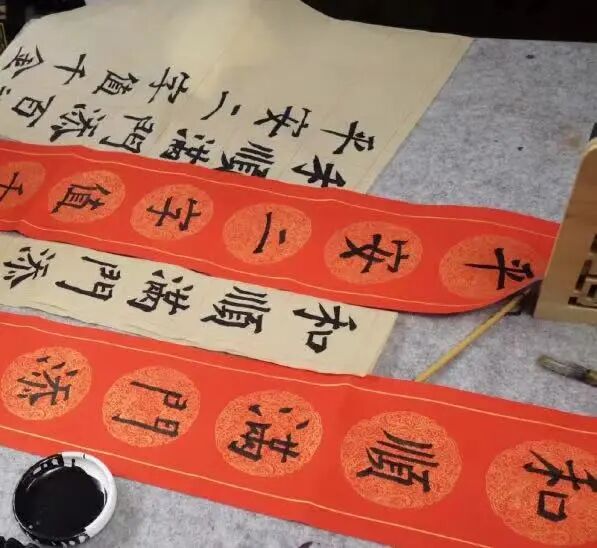 平安二字值千金
和順滿門添百
平安二字值千
和順滿門添
和順滿門添